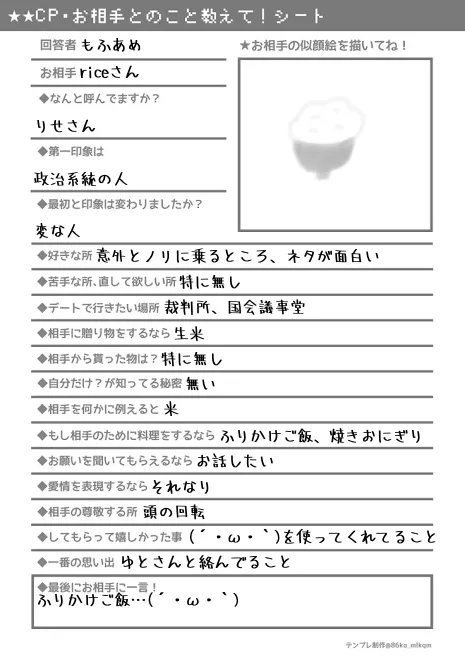 ★★CP・お相手とのこと教えて！シート
回答者 もふあめ
★お相手の似顔絵を描いてね！
お相手 riceさん
◆なんと呼んでますか？
りせさん
◆第一印象は
政治系統の人
◆最初と印象は変わりましたか？
変な人
◆好きな所 意外とノリに乗るところ、ネタが面白い
◆苦手な所、直して欲しい所 特に無し
◆デートで行きたい場所 裁判所、国会議事堂
◆相手に贈り物をするなら 生米
◆相手から貰った物は？ 特に無し
◆自分だけ？が知ってる秘密 無い
◆相手を何かに例えると 米
◆もし相手のために料理をするなら ふりかけご飯、焼きおにぎり
◆お願いを聞いてもらえるなら お話したい
◆愛情を表現するなら それなり
◆相手の尊敬する所 頭の回転
◆してもらって嬉しかった事 (´・ω・｀)を使ってくれてること
◆一番の思い出 ゆとさんと絡んでること
◆最後にお相手に一言！
ふりかけご飯…(´・ω・｀)
テンプレ制作@86ko_mlkqm